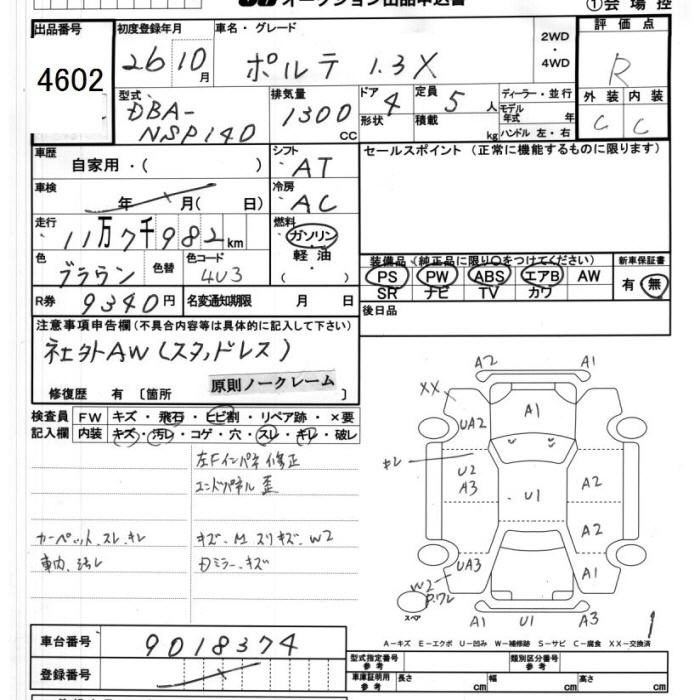 オークション出品申込書
①会場控
出品番号
4602
初度登録年月
26 10月
車名・グレード
ポルテ 1.3X
2WD
・
4WD
評価点
R
外装 内装
C C
型式
DBA-
NSP140
排気量
1300
cc
ドア 4
形状
定員 5 人
積載 kg
ディーラー・並行
モデル
年式 年
ハンドル 左・右
車歴 自家用・( )
シフト
AT
セールスポイント (正常に機能するものに限ります)
車検 年 月( 日)
冷房
AC
走行
11万7千982km
燃料
ガソリン
軽油
( )
色
ブラウン
色替
色コード
4U3
装備品 (純正品に限り○をつけてください)
新車保証書
PS PW ABS エアB AW
SR ナビ TV カワ
有・無
R券 9340円
名変通知期限 月 日
後日品
注意事項申告欄(不具合内容等は具体的に記入して下さい)
社外AW(スタッドレス)
修復歴 有 〔箇所
原則ノークレーム
検査員
記入欄
FW キズ・飛石・ヒビ割・リペア跡・×要
内装 キズ・汚レ・コゲ・穴・スレ・キレ・破レ
左Fインパネ修正
エンドパネル歪
カーペット.スレ.キレ
キズ.M スリキズ.W2
車内.汚レ
Dミラー.キズ
A2 A1
XX
A1
UA2
キレ
U2
A3
U1
A2
A2
UA3
A1
W2
P.ワレ
スペア
A1 U1 A3
1
A-キズ E-エクボ U-凹み W-補修跡 S-サビ C-腐食 XX-交換済
車台番号 9018374
登録番号
型式指定番号
参考
類別区分番号
参考
車庫証明用
参考
長さ cm 幅 cm 高さ cm